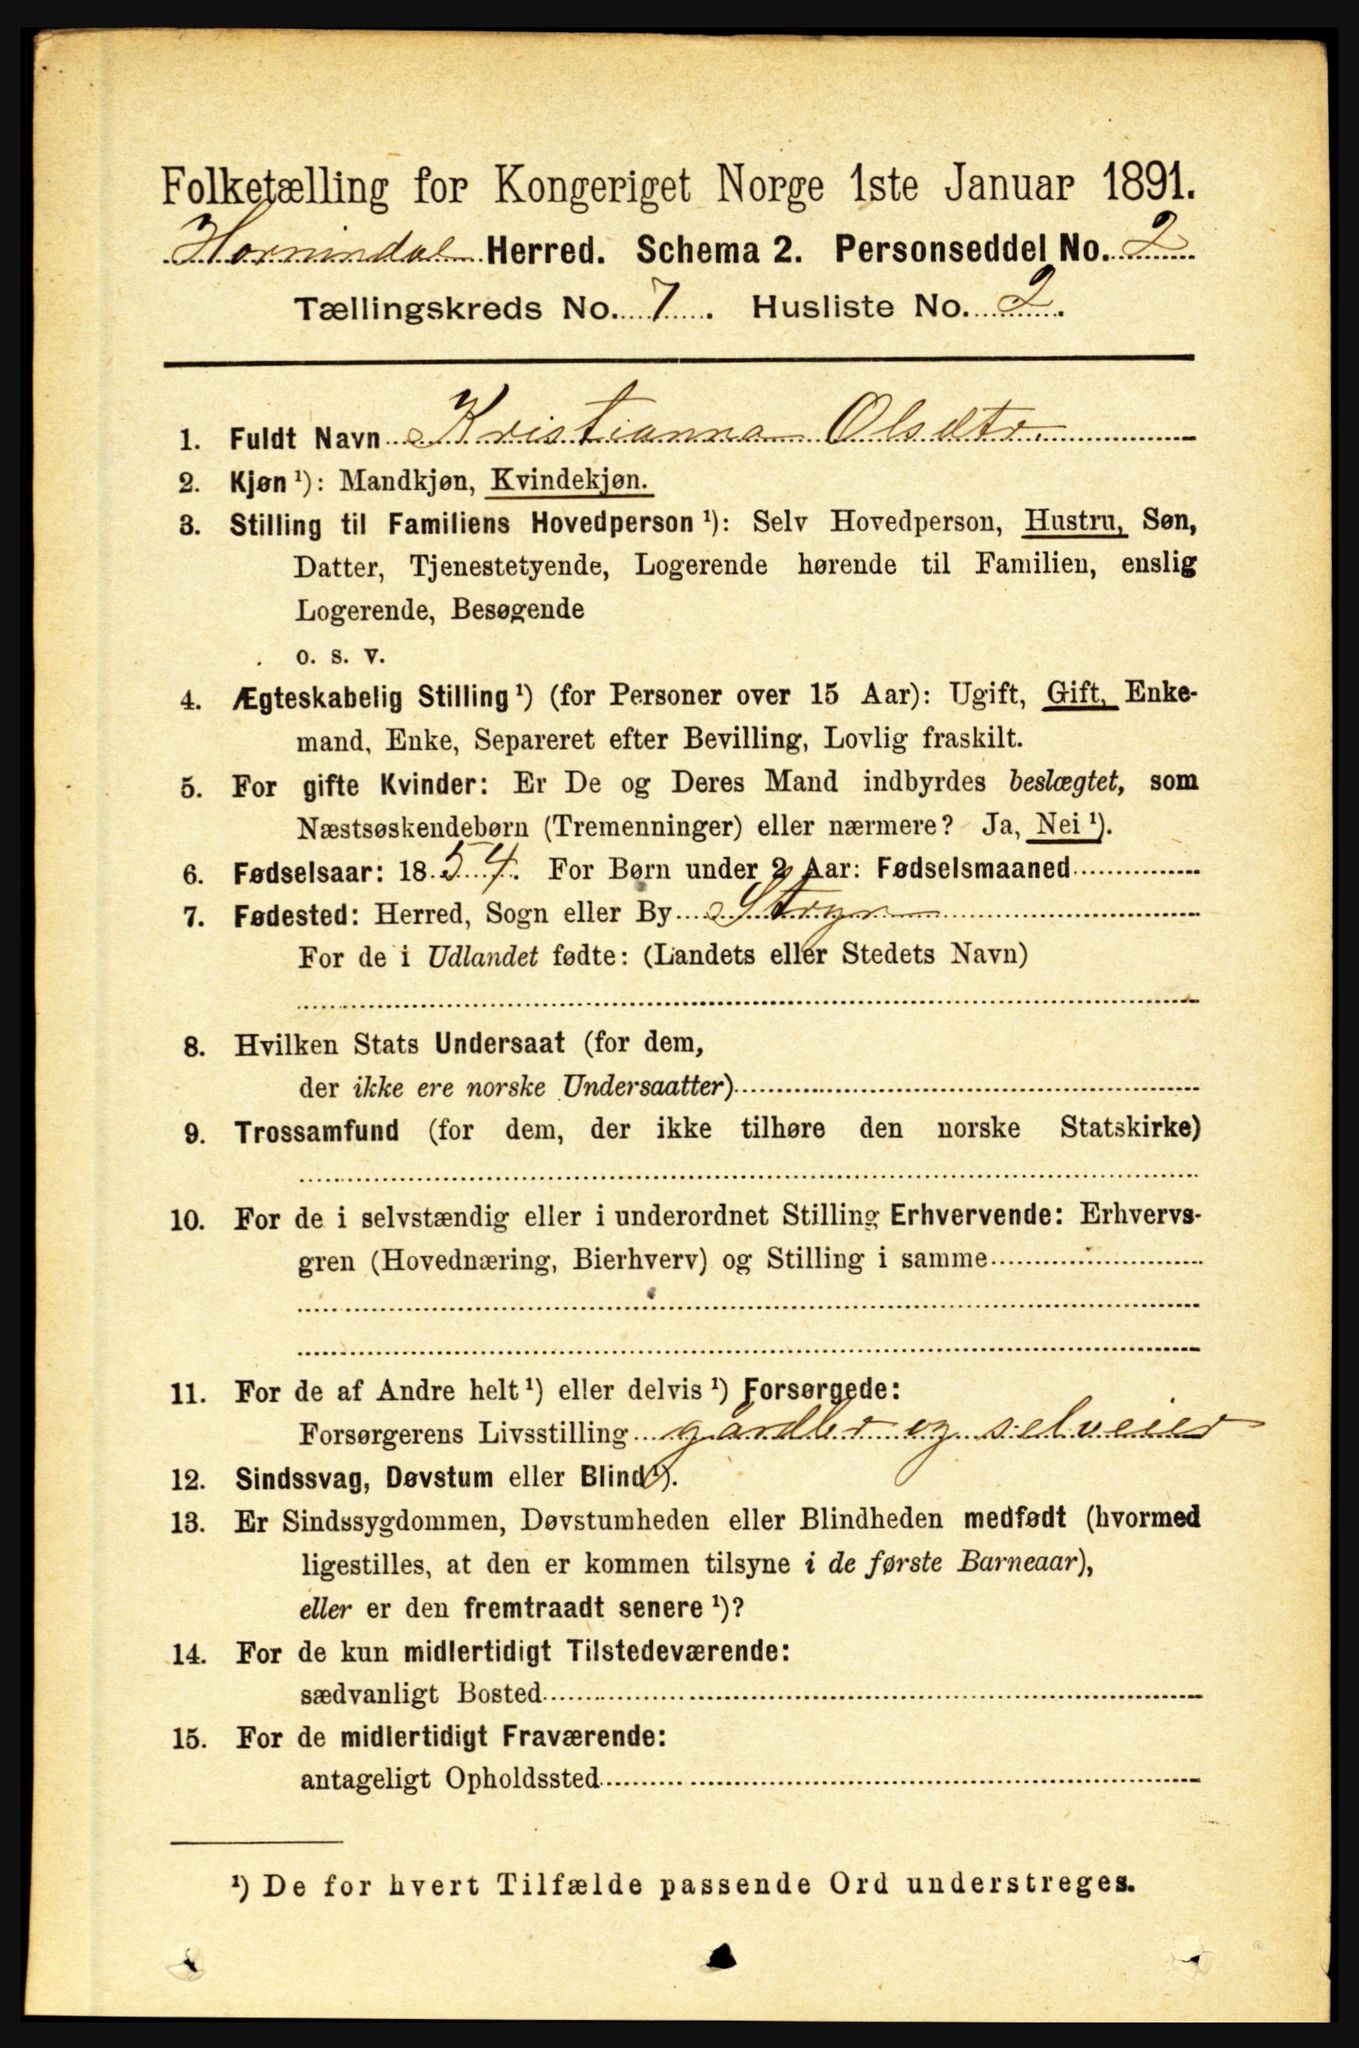 Folketælling for Kongeriget Norge 1ste Januar 1891.
Hornindal Herred. Schema 2. Personseddel No. 2
Tællingskreds No. 7. Husliste No. 2.
1. Fuldt Navn Kristianna Olsdtr.
2. Kjøn ¹): Mandkjøn, Kvindekjøn.
3. Stilling til Familiens Hovedperson ¹): Selv Hovedperson, Hustru, Søn,
Datter, Tjenestetyende, Logerende hørende til Familien, enslig
Logerende, Besøgende
o. s. v.
4. Ægteskabelig Stilling ¹) (for Personer over 15 Aar): Ugift, Gift, Enke-
mand, Enke, Separeret efter Bevilling, Lovlig fraskilt.
5. For gifte Kvinder: Er De og Deres Mand indbyrdes beslægtet, som
Næstsøskendebørn (Tremenninger) eller nærmere? Ja, Nei ¹).
6. Fødselsaar: 1854. For Børn under 2 Aar: Fødselsmaaned
7. Fødested: Herred, Sogn eller By Stryn
For de i Udlandet fødte: (Landets eller Stedets Navn)
8. Hvilken Stats Undersaat (for dem,
der ikke ere norske Undersaatter)
9. Trossamfund (for dem, der ikke tilhøre den norske Statskirke)
10. For de i selvstændig eller i underordnet Stilling Erhvervende: Erhvervs-
gren (Hovednæring, Bierhverv) og Stilling i samme
11. For de af Andre helt ¹) eller delvis ¹) Forsørgede:
Forsørgerens Livsstilling gårdbr og selveier
12. Sindssvag, Døvstum eller Blind ¹).
13. Er Sindssygdommen, Døvstumheden eller Blindheden medfødt (hvormed
ligestilles, at den er kommen tilsyne i de første Barneaar),
eller er den fremtraadt senere ¹)?
14. For de kun midlertidigt Tilstedeværende:
sædvanligt Bosted
15. For de midlertidigt Fraværende:
antageligt Opholdssted
¹) De for hvert Tilfælde passende Ord understreges.